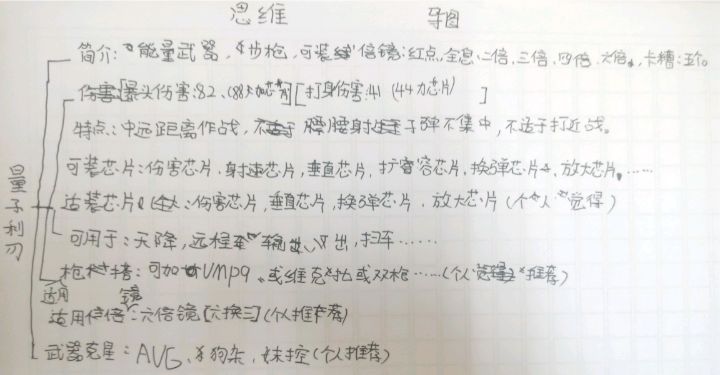 思维 导图
量子利刃
简介:能量武器,步枪,可装倍镜:红点,全息,二倍,三倍,四倍,六倍,卡槽:五个。
伤害[暴头伤害:82、(88加芯片)][打身伤害:41(44力芯片)]
特点:中远距离作战,腰射子弹不集中,不适于打近战。
可装芯片:伤害芯片,射速芯片,垂直芯片,扩容芯片,换弹芯片,放大芯片,……
适装芯片:伤害芯片,垂直芯片,换弹芯片,放大芯片(个人觉得)
可用于:天降,远程输出,扫车……
枪搭:可加UMP9、或维克托或双枪……(个人推荐)
适用倍镜:六倍镜[六换三](个人推荐)
武器克星:AVG、狗杂、妹控(个人推荐)